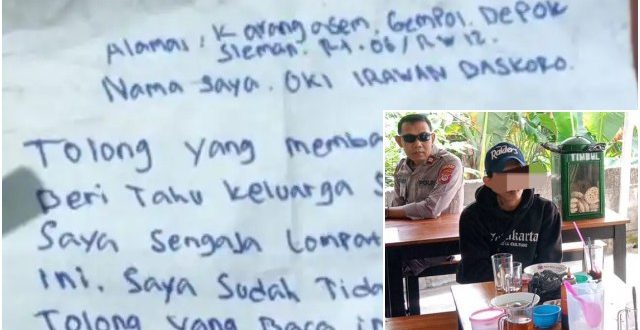 Alamat : Karangasem. Gempol. Depok
Sleman. RT. 06 / RW 12.
Nama saya. OKI IRAWAN BASKORO.
Tolong yang memba
Beri Tahu keluarga S
Saya Sengaja Lompat
ini. Saya Sudah Tida
Tolong yang Baca in
Raiders
TIMBUL